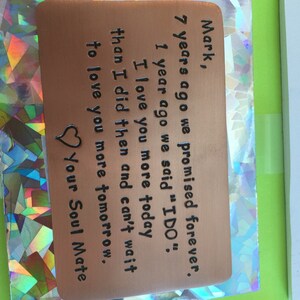 Mark,
7 years ago we promised forever.
1 year ago we said "IDO".
I love you more today
than I did then and can't wait
to love you more tomorrow.
♡ Your Soul Mate